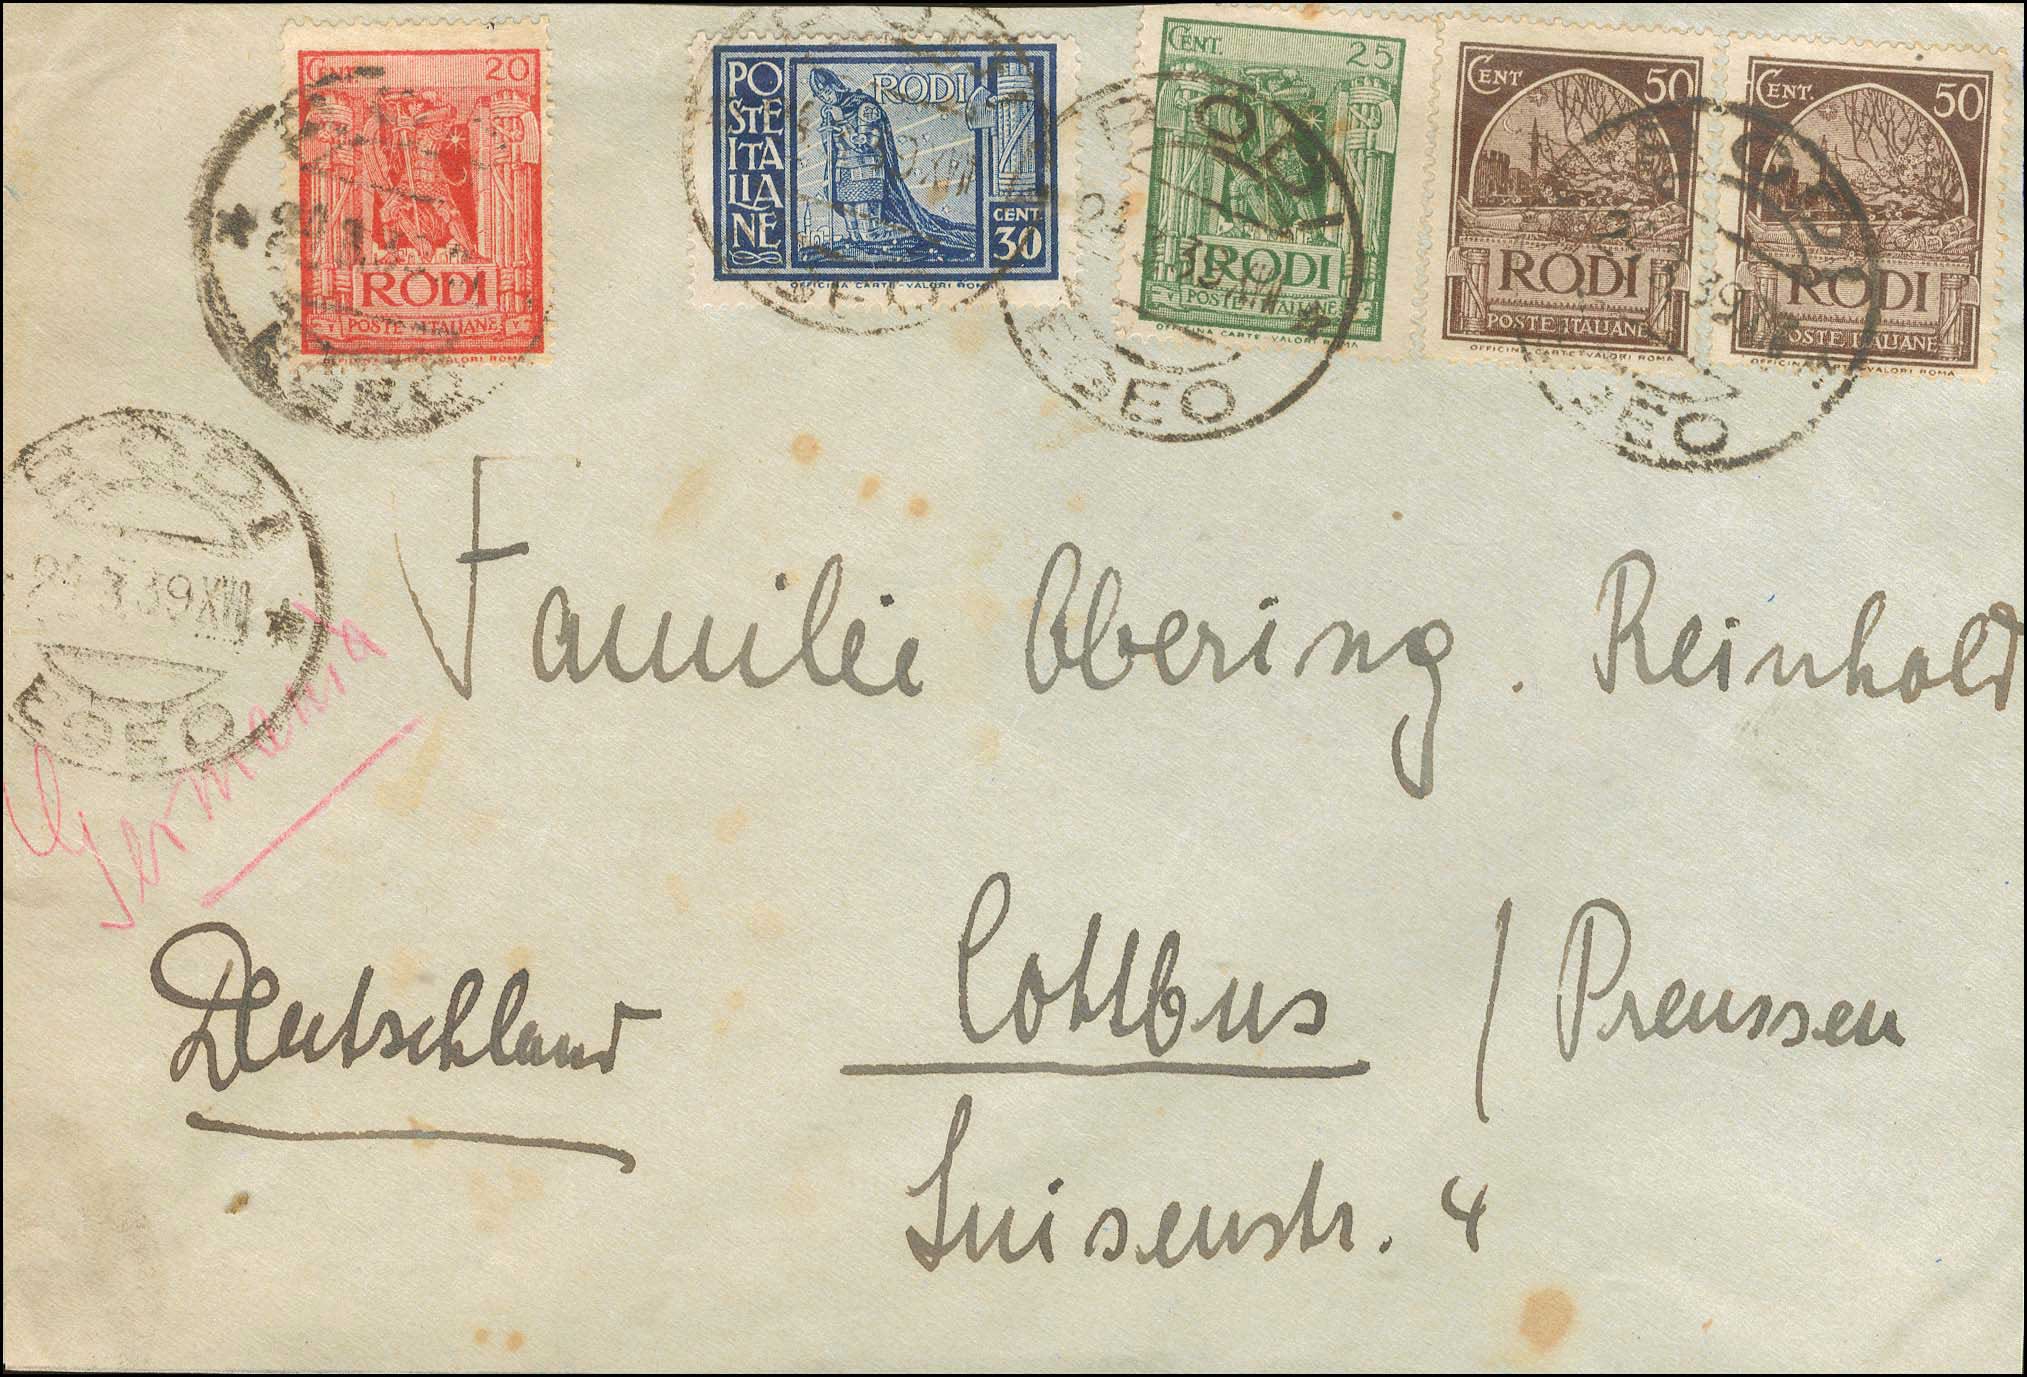 CENT. 20
RODI
POSTE ITALIANE
OFFICINA CARTE-VALORI ROMA
POSTE ITALIANE
RODI
CENT. 30
OFFICINA CARTE-VALORI ROMA
CENT. 25
RODI
POSTE ITALIANE
OFFICINA CARTE-VALORI ROMA
CENT 50
RODI
POSTE ITALIANE
OFFICINA CARTE-VALORI ROMA
CENT. 50
RODI
POSTE ITALIANE
OFFICINA CARTE-VALORI ROMA
EGEO
RODI
EGEO
EGEO
RODI
39 XVII
EGEO
Germania
Familie Obering. Reinhold
Deutschland
Cottbus / Preussen
Luisenstr. 4